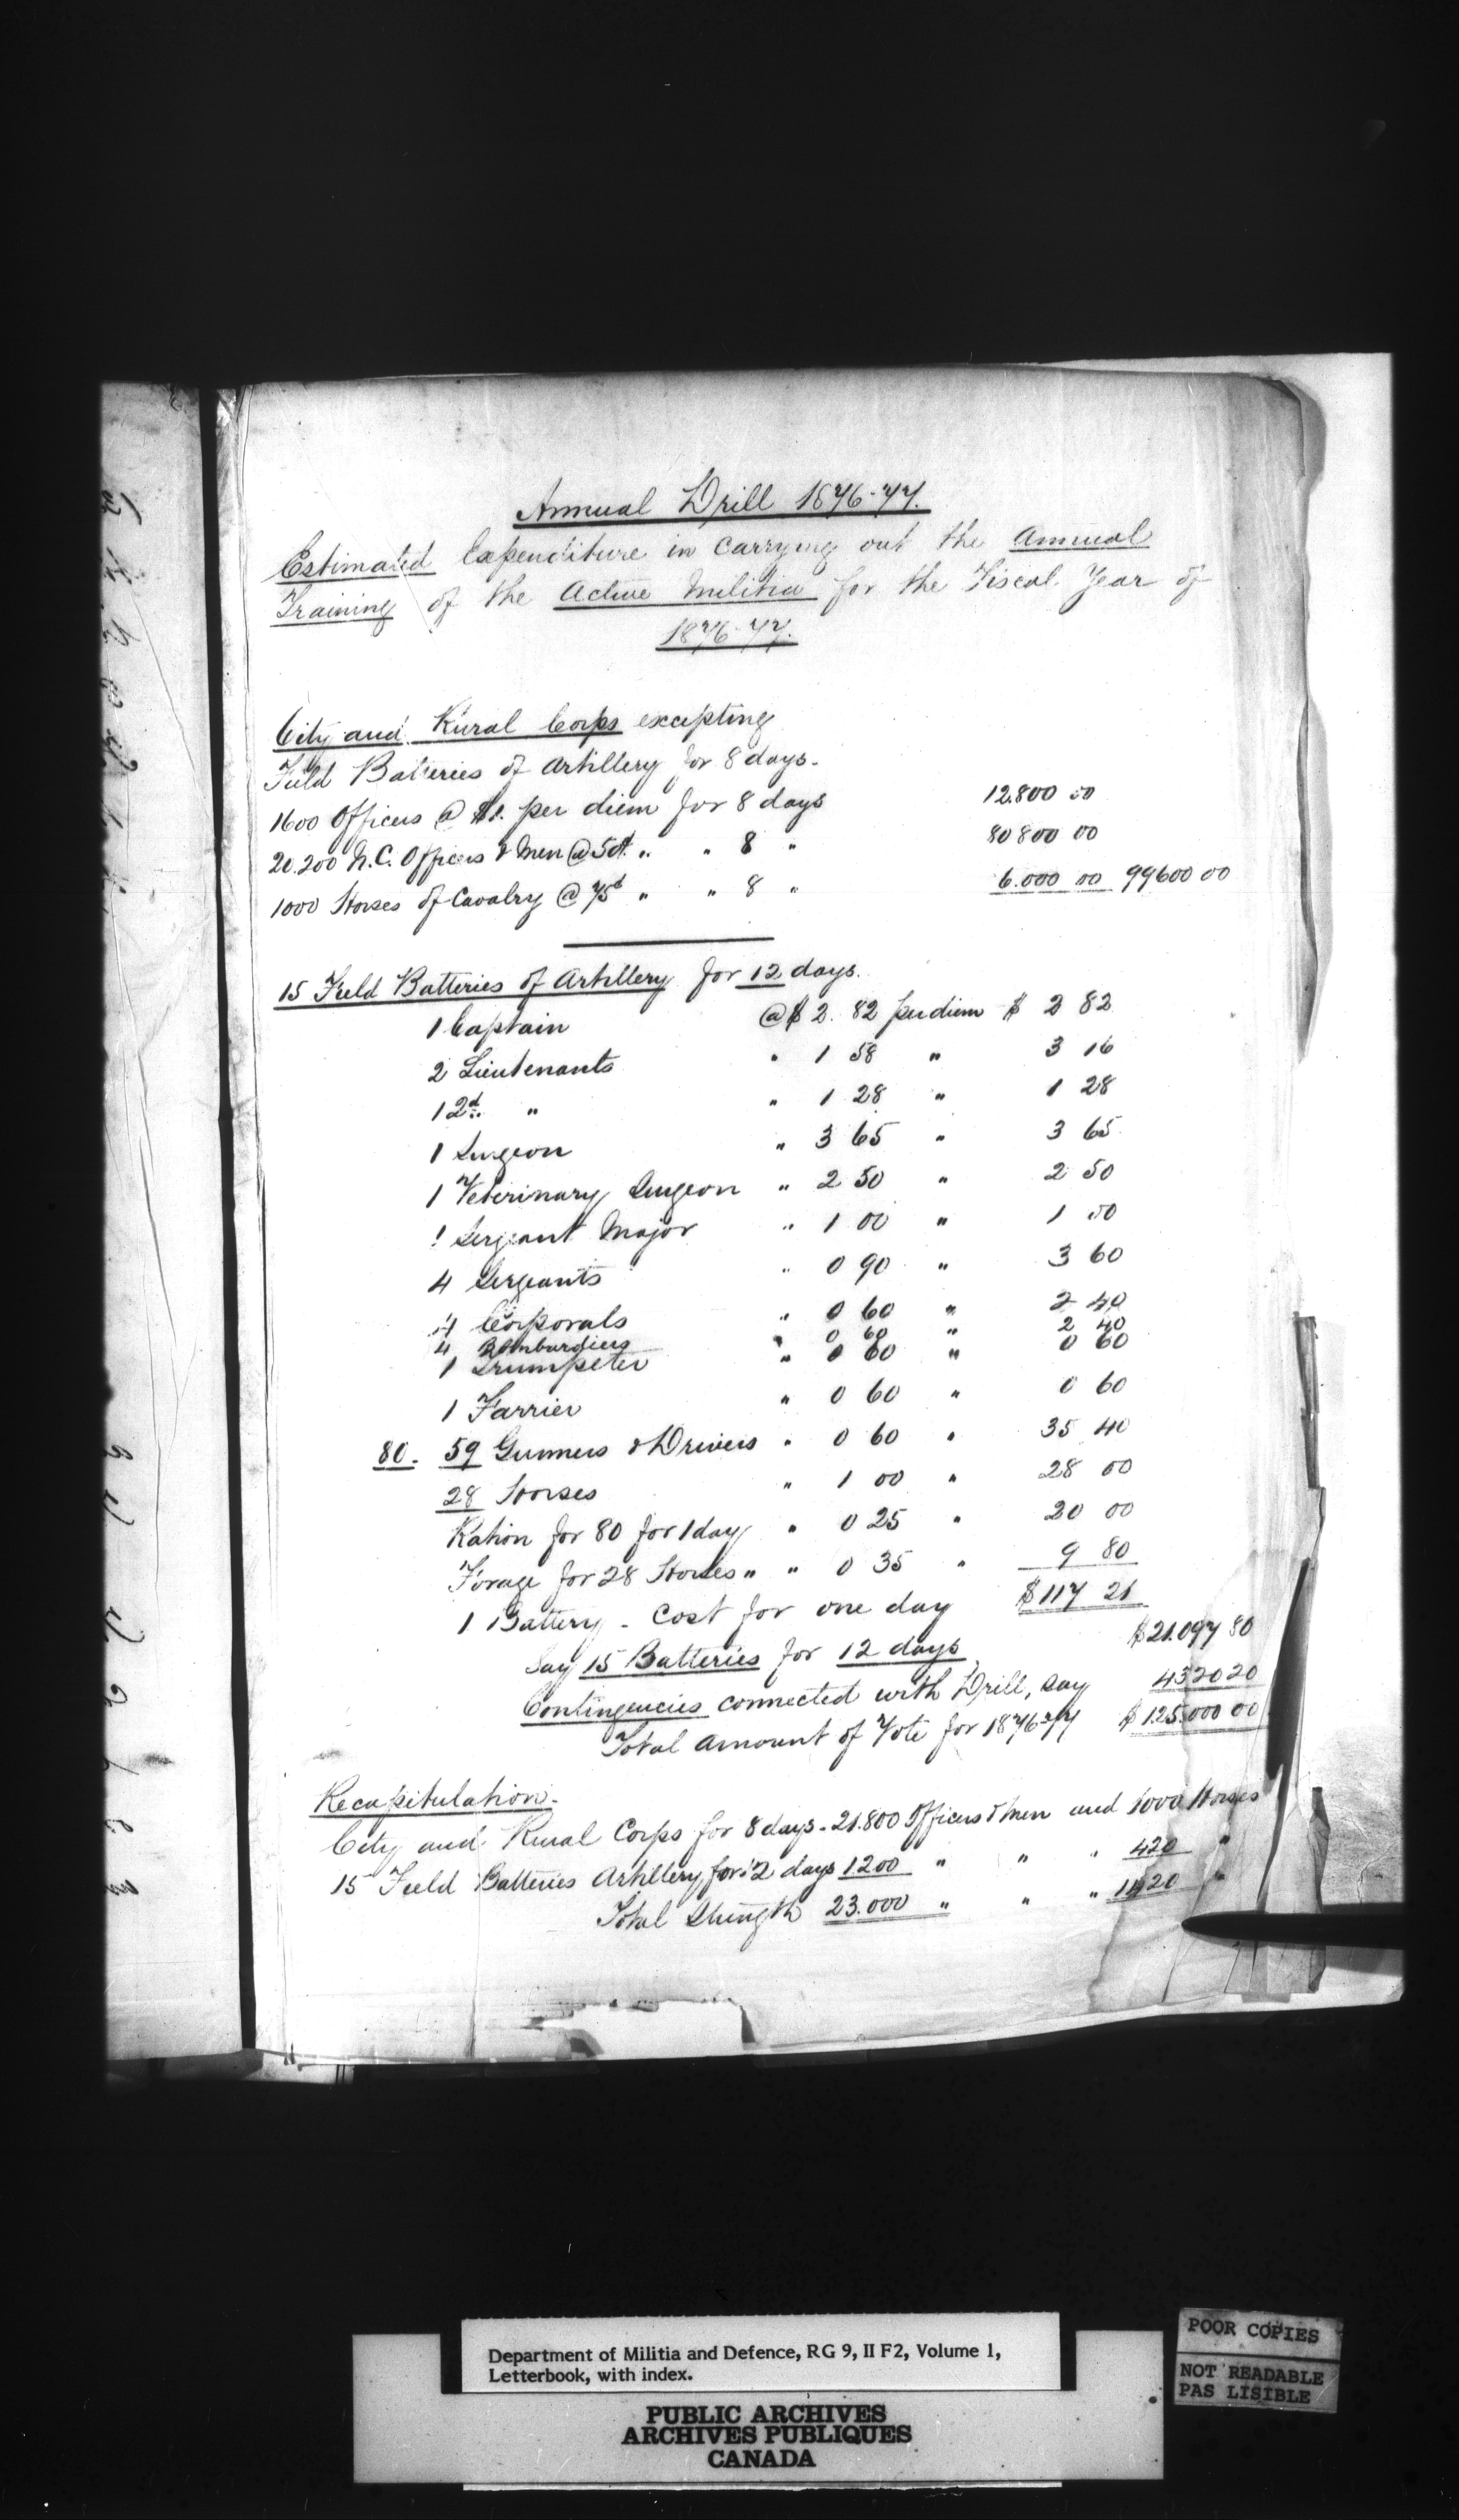 Annual Drill 1876-77.
Estimated Expenditure in Carrying out the Annual
Training of the Active Militia for the Fiscal Year of
1876-77.
City and Rural Corps excepting
Field Batteries of Artillery for 8 days.
1600 Officers @ $1. per diem for 8 days 12.800 00
20.200 N.C. Officers & Men @ 50c. " " 8 " 80 800 00
1000 Horses of Cavalry @ 75c " " 8 " 6.000 00 99600 00
15 Field Batteries of Artillery for 12 days.
1 Captain @ $ 2. 82 per diem $ 2 82
2 Lieutenants " 1 58 " 3 16
1 2d. " " 1 28 " 1 28
1 Surgeon " 3 65 " 3 65
1 Veterinary Surgeon " 2 50 " 2 50
1 Sergeant Major " 1 00 " 1 00
4 Sergeants " 0 90 " 3 60
4 Corporals " 0 60 " 2 40
4 Bombardiers " 0 60 " 2 40
1 Trumpeter " 0 60 " 0 60
1 Farrier " 0 60 " 0 60
80. 59 Gunners & Drivers " 0 60 " 35 40
28 Horses " 1 00 " 28 00
Ration for 80 for 1 day " 0 25 " 20 00
Forage for 28 Horses " " 0 35 " 9 80
1 Battery - Cost for one day $ 117 21
Say 15 Batteries for 12 days $21.097 80
Contingencies connected with Drill, say 4302 20
Total Amount of Vote for 1876-77 $ 125.000 00
Recapitulation.
City and Rural Corps for 8 days - 21.800 Officers & Men and 1000 Horses
15 Field Batteries Artillery for 12 days 1200 " " " 420 "
Total Strength 23.000 " " " 1420 "
Department of Militia and Defence, RG 9, II F2, Volume 1,
Letterbook, with index.
PUBLIC ARCHIVES
ARCHIVES PUBLIQUES
CANADA
POOR COPIES
NOT READABLE
PAS LISIBLE